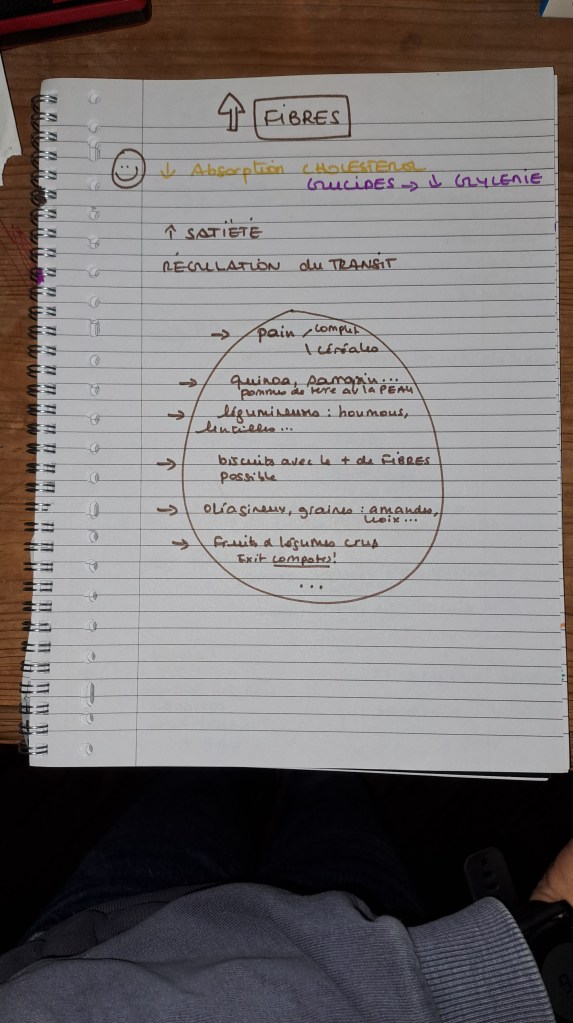 ↑ FIBRES
↓ Absorption CHOLESTEROL
GLUCIDES → ↓ GLYCEMIE
↑ SATIÉTÉ
RÉGULATION du TRANSIT
→ pain / complet
\ céréales
→ quinoa, sarrasin...
pommes de terre av la PEAU
→ légumineuses : houmous,
lentilles...
→ biscuits avec le + de FIBRES
possible
→ oléagineux, graines : amandes,
noix...
→ Fruits & légumes crus
Exit compotes!
...